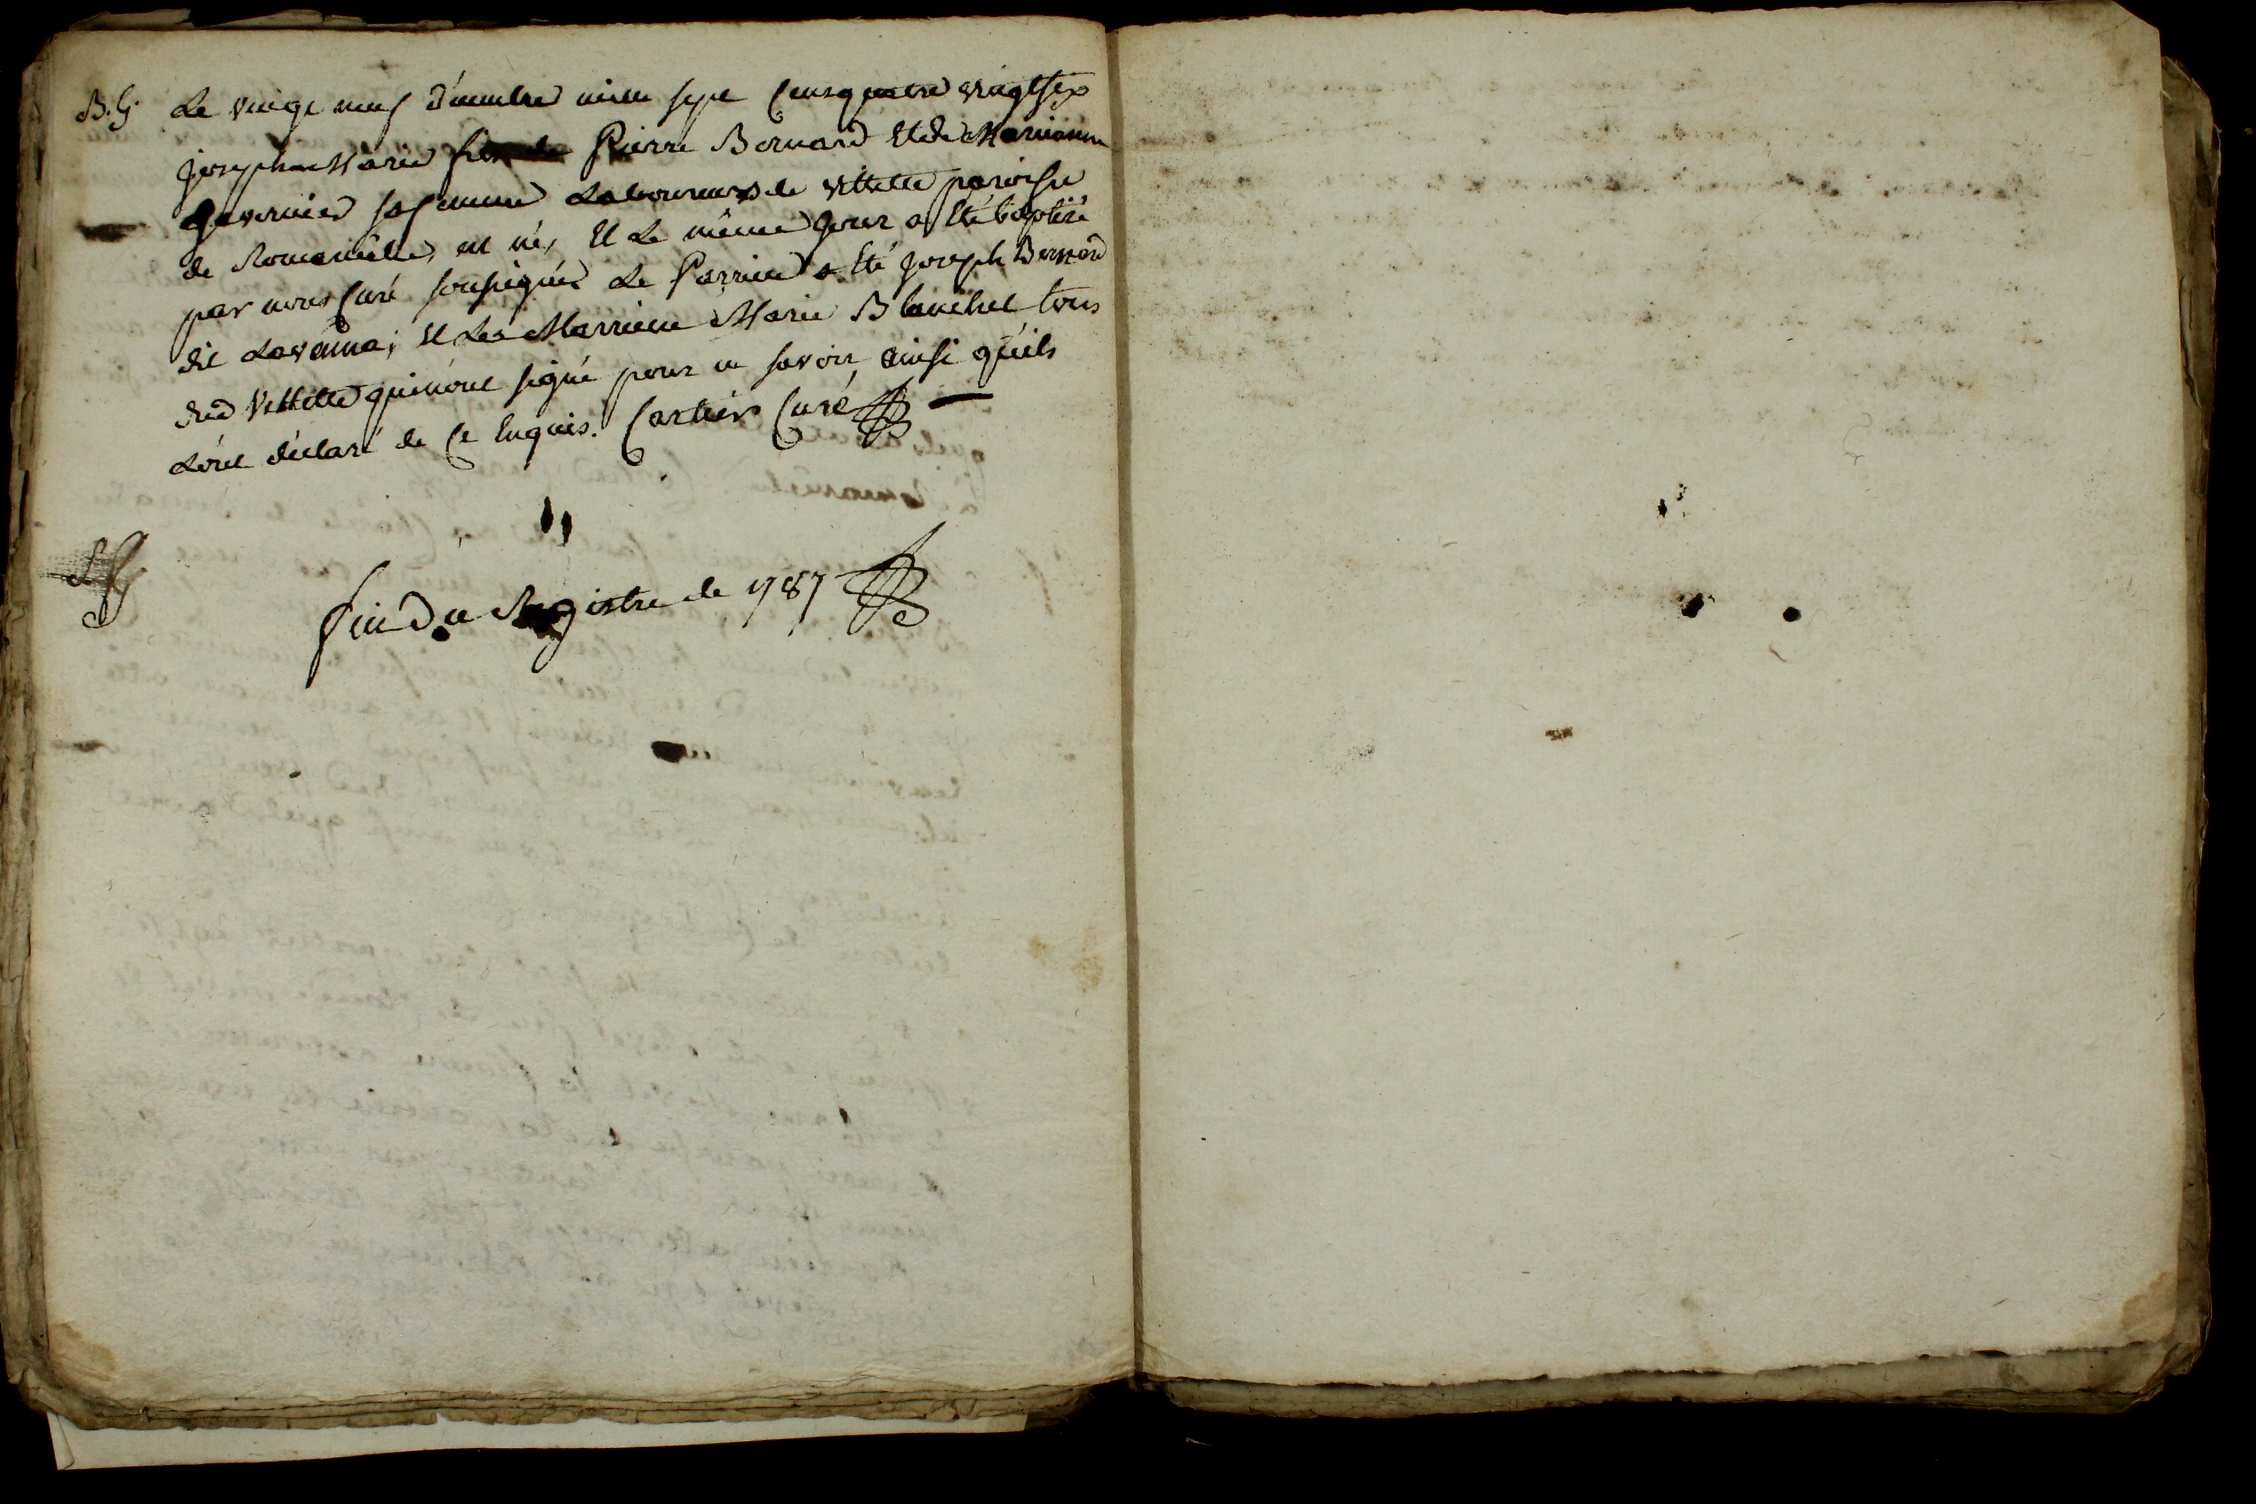 B. G. Le vingt neuf décembre mille sept cens quatre vingt sept
joseph Marie fils de Pierre Bernard Et de Marianne
sa femme Laboureurs de vittette paroisse
de Romanêche, est né, Et Le même jour a Eté baptisé
par nous Curé soussigné Le Parrien a Eté joseph Bernard
dit ; Et La Marriene Marie Blanchet tous
de vittette qui n'ont signé pour ne savoir ainsi qu'ils
L'ont déclaré de Ce Enquis. Cartier Curé
fin Du Registre de 1787